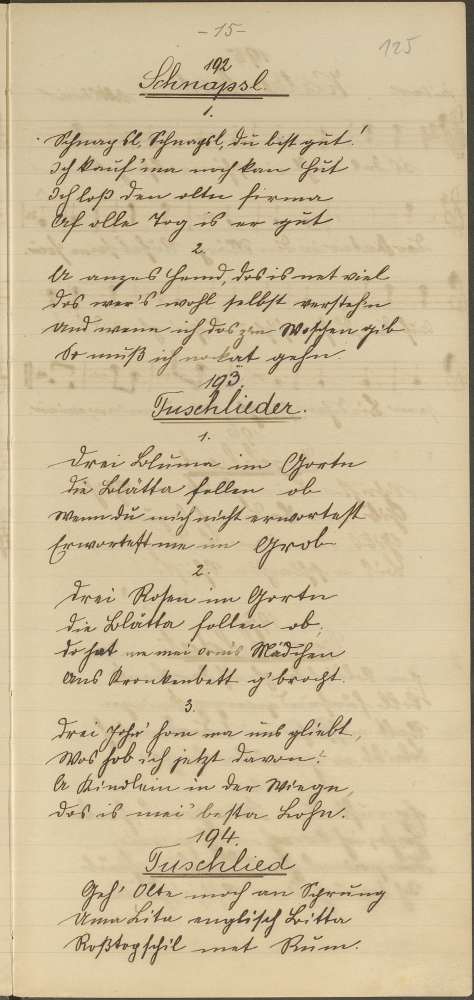 - 15 -
125
192
Schnapsl.
1.
Schnapsl, Schnapsl, du bist gut!
Ich kauf' ma noch kan Hut
Ich loß den olten Firma
Af olle Tog is er gut
2.
A anzes Hemd, dos is net viel
dos wer's wohl selbst verstehn
und wenn ich dos zan Woschen gib
So muß ich nackat gehn
193.
Tuschlieder.
1.
Drei Bluma im Gortn
die Blätta follen ob
Wenn du mich nicht erwortest
Erwortest me im Grob
2.
Drei Rosen im Gortn
die Blätta follen ob,
do hat me mei Mädchen
Ans Kronkenbett g'brocht.
3.
Drei Johr' hom ma uns gliebt,
Wos hob ich jetzt davon!
A Kindlein in der Wiege,
dos is mei' besta Lohn.
194.
Tuschlied
Geh' Olte moch an Sprung
Uma Lita englisch Bitta
met Rum.